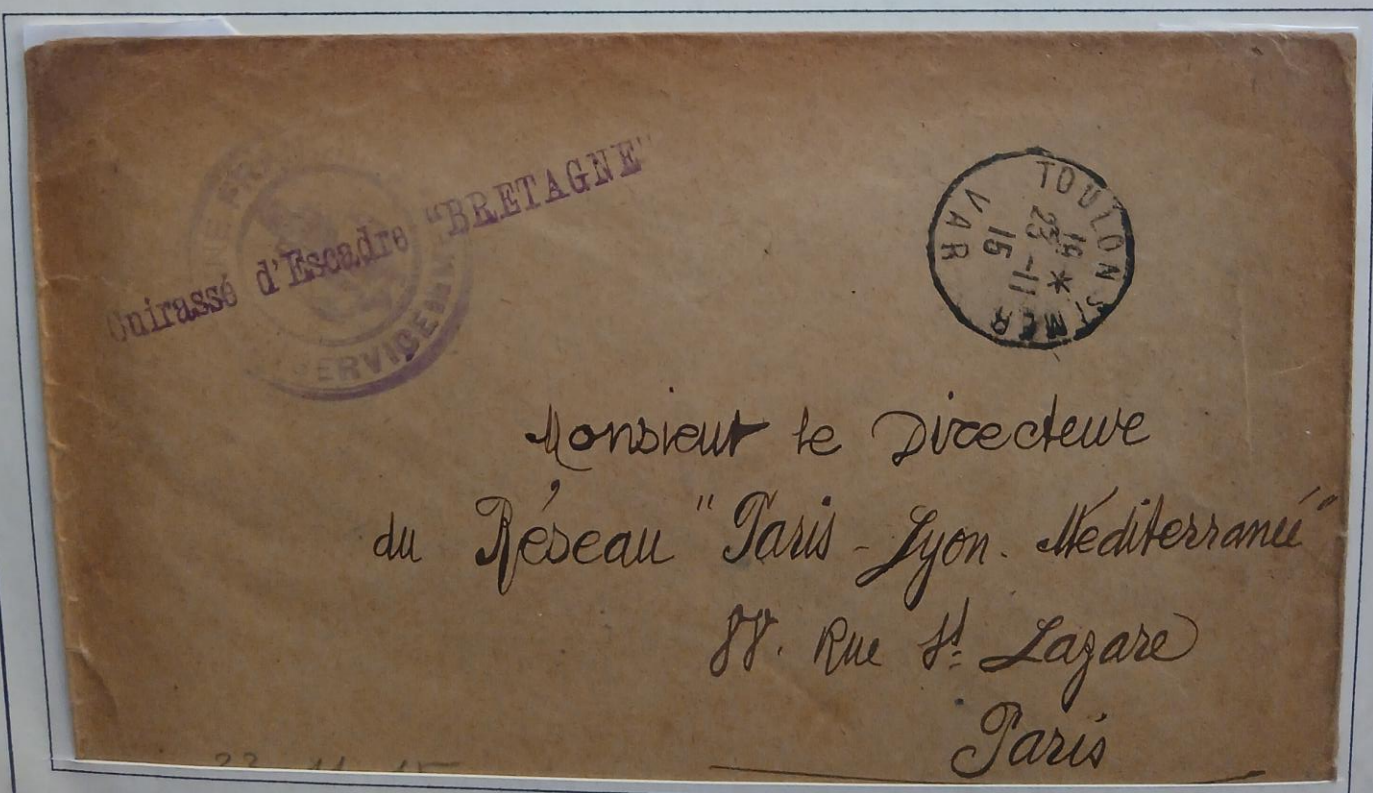 Cuirassé d'Escadre "BRETAGNE"
SERVICE
TOULON S MER
19 *
23 -11
15
VAR
Monsieur le Directeur
du Réseau "Paris-Lyon-Méditerranée"
88. Rue St Lazare
Paris
23 11 15